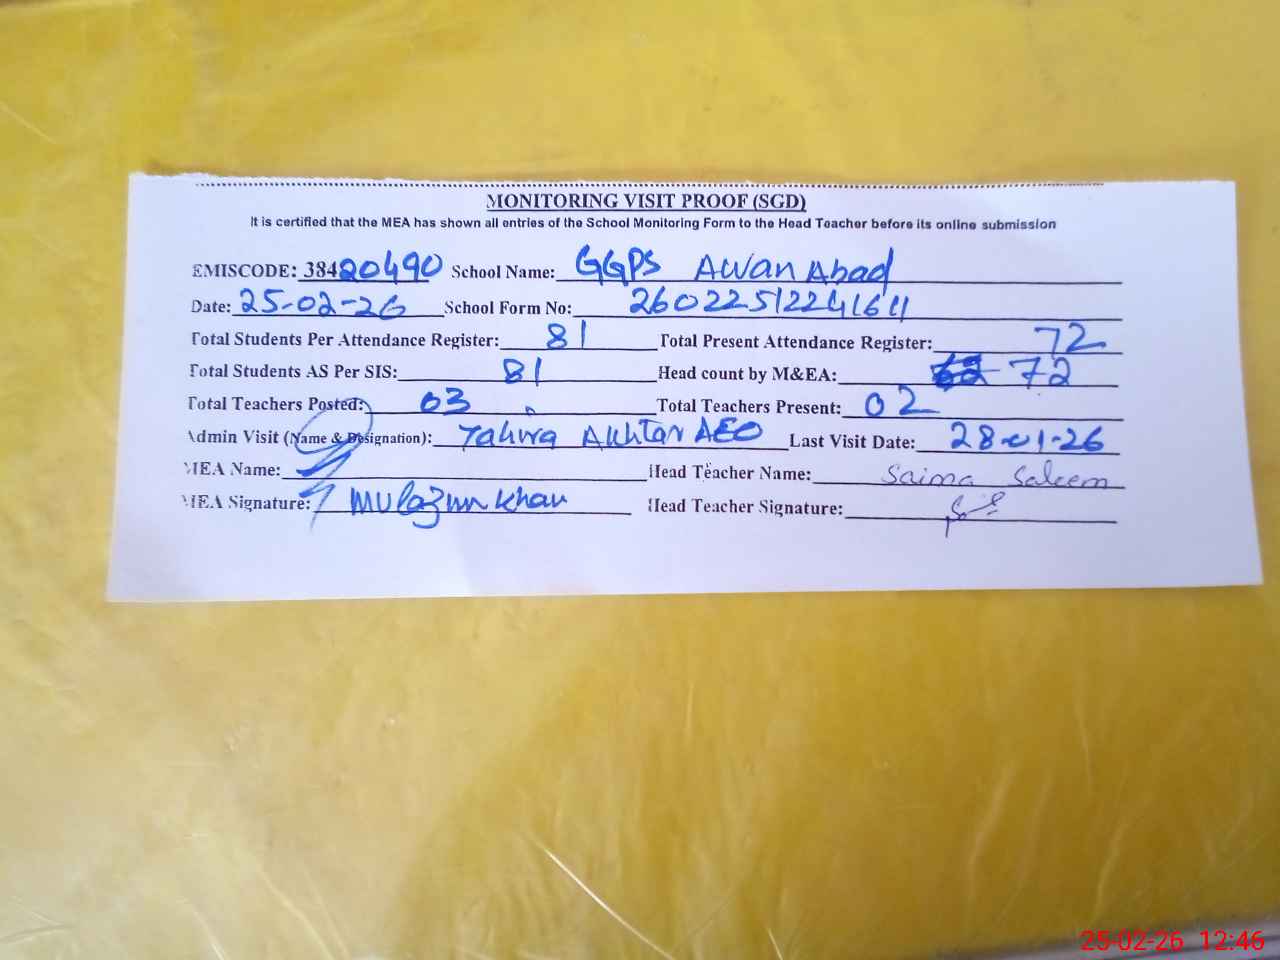 MONITORING VISIT PROOF (SGD)
It is certified that the MEA has shown all entries of the School Monitoring Form to the Head Teacher before its online submission
EMISCODE: 38420490 School Name: GGPS Awan Abad
Date: 25-02-26 School Form No:
Total Students Per Attendance Register: 81 Total Present Attendance Register: 72
Total Students AS Per SIS: 81 Head count by M&EA: 72
Total Teachers Posted: 03 Total Teachers Present: 02
Admin Visit (Name & Designation): Akhtar AEO Last Visit Date: 28-01-26
MEA Name: Head Teacher Name: Saima Saleem
MEA Signature: Mulazim Khan Head Teacher Signature:
25-02-26 12:46